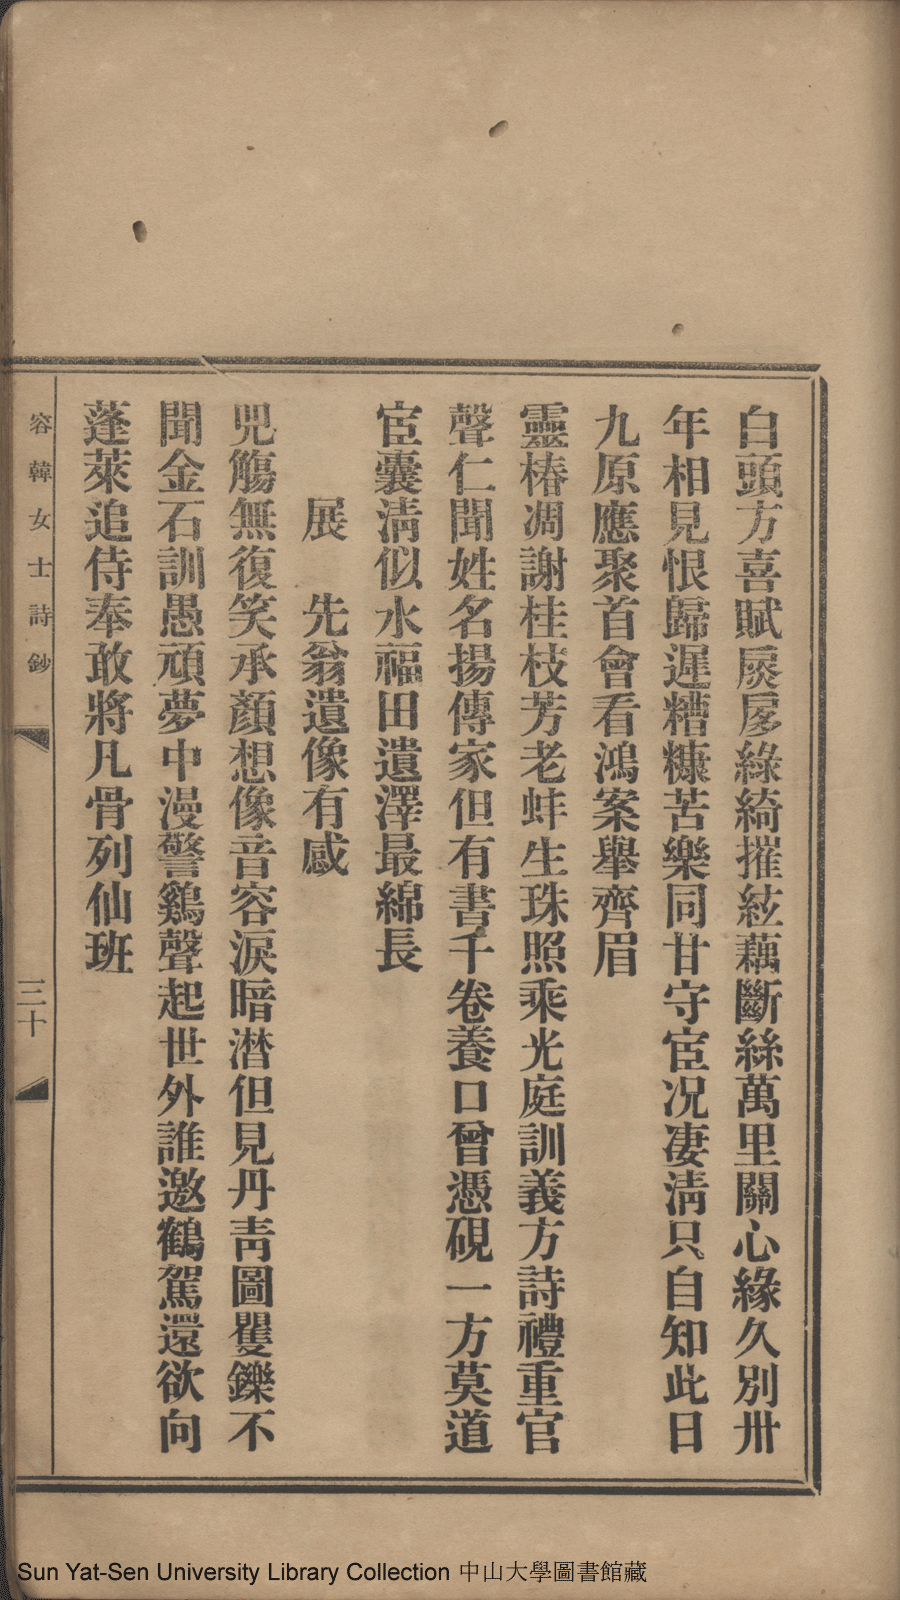 白頭方喜賦扊扅綠綺摧絃藕斷絲萬里關心緣久別卅
年相見恨歸遲糟糠苦樂同甘守宦况凄淸只自知此日
九原應聚首會看鴻案舉齊眉
靈椿凋謝桂枝芳老蚌生珠照乘光庭訓義方詩禮重官
聲仁聞姓名揚傳家但有書千卷養口曾憑硯一方莫道
宦囊淸似水福田遺澤最綿長
展　先翁遺像有感
兕觴無復笑承顏想像音容淚暗潸但見丹靑圖矍鑠不
聞金石訓愚頑夢中漫警鷄聲起世外誰邀鶴駕還欲向
蓬萊追侍奉敢將凡骨列仙班
容韓女士詩鈔
三十
Sun Yat-Sen University Library Collection 中山大學圖書館藏